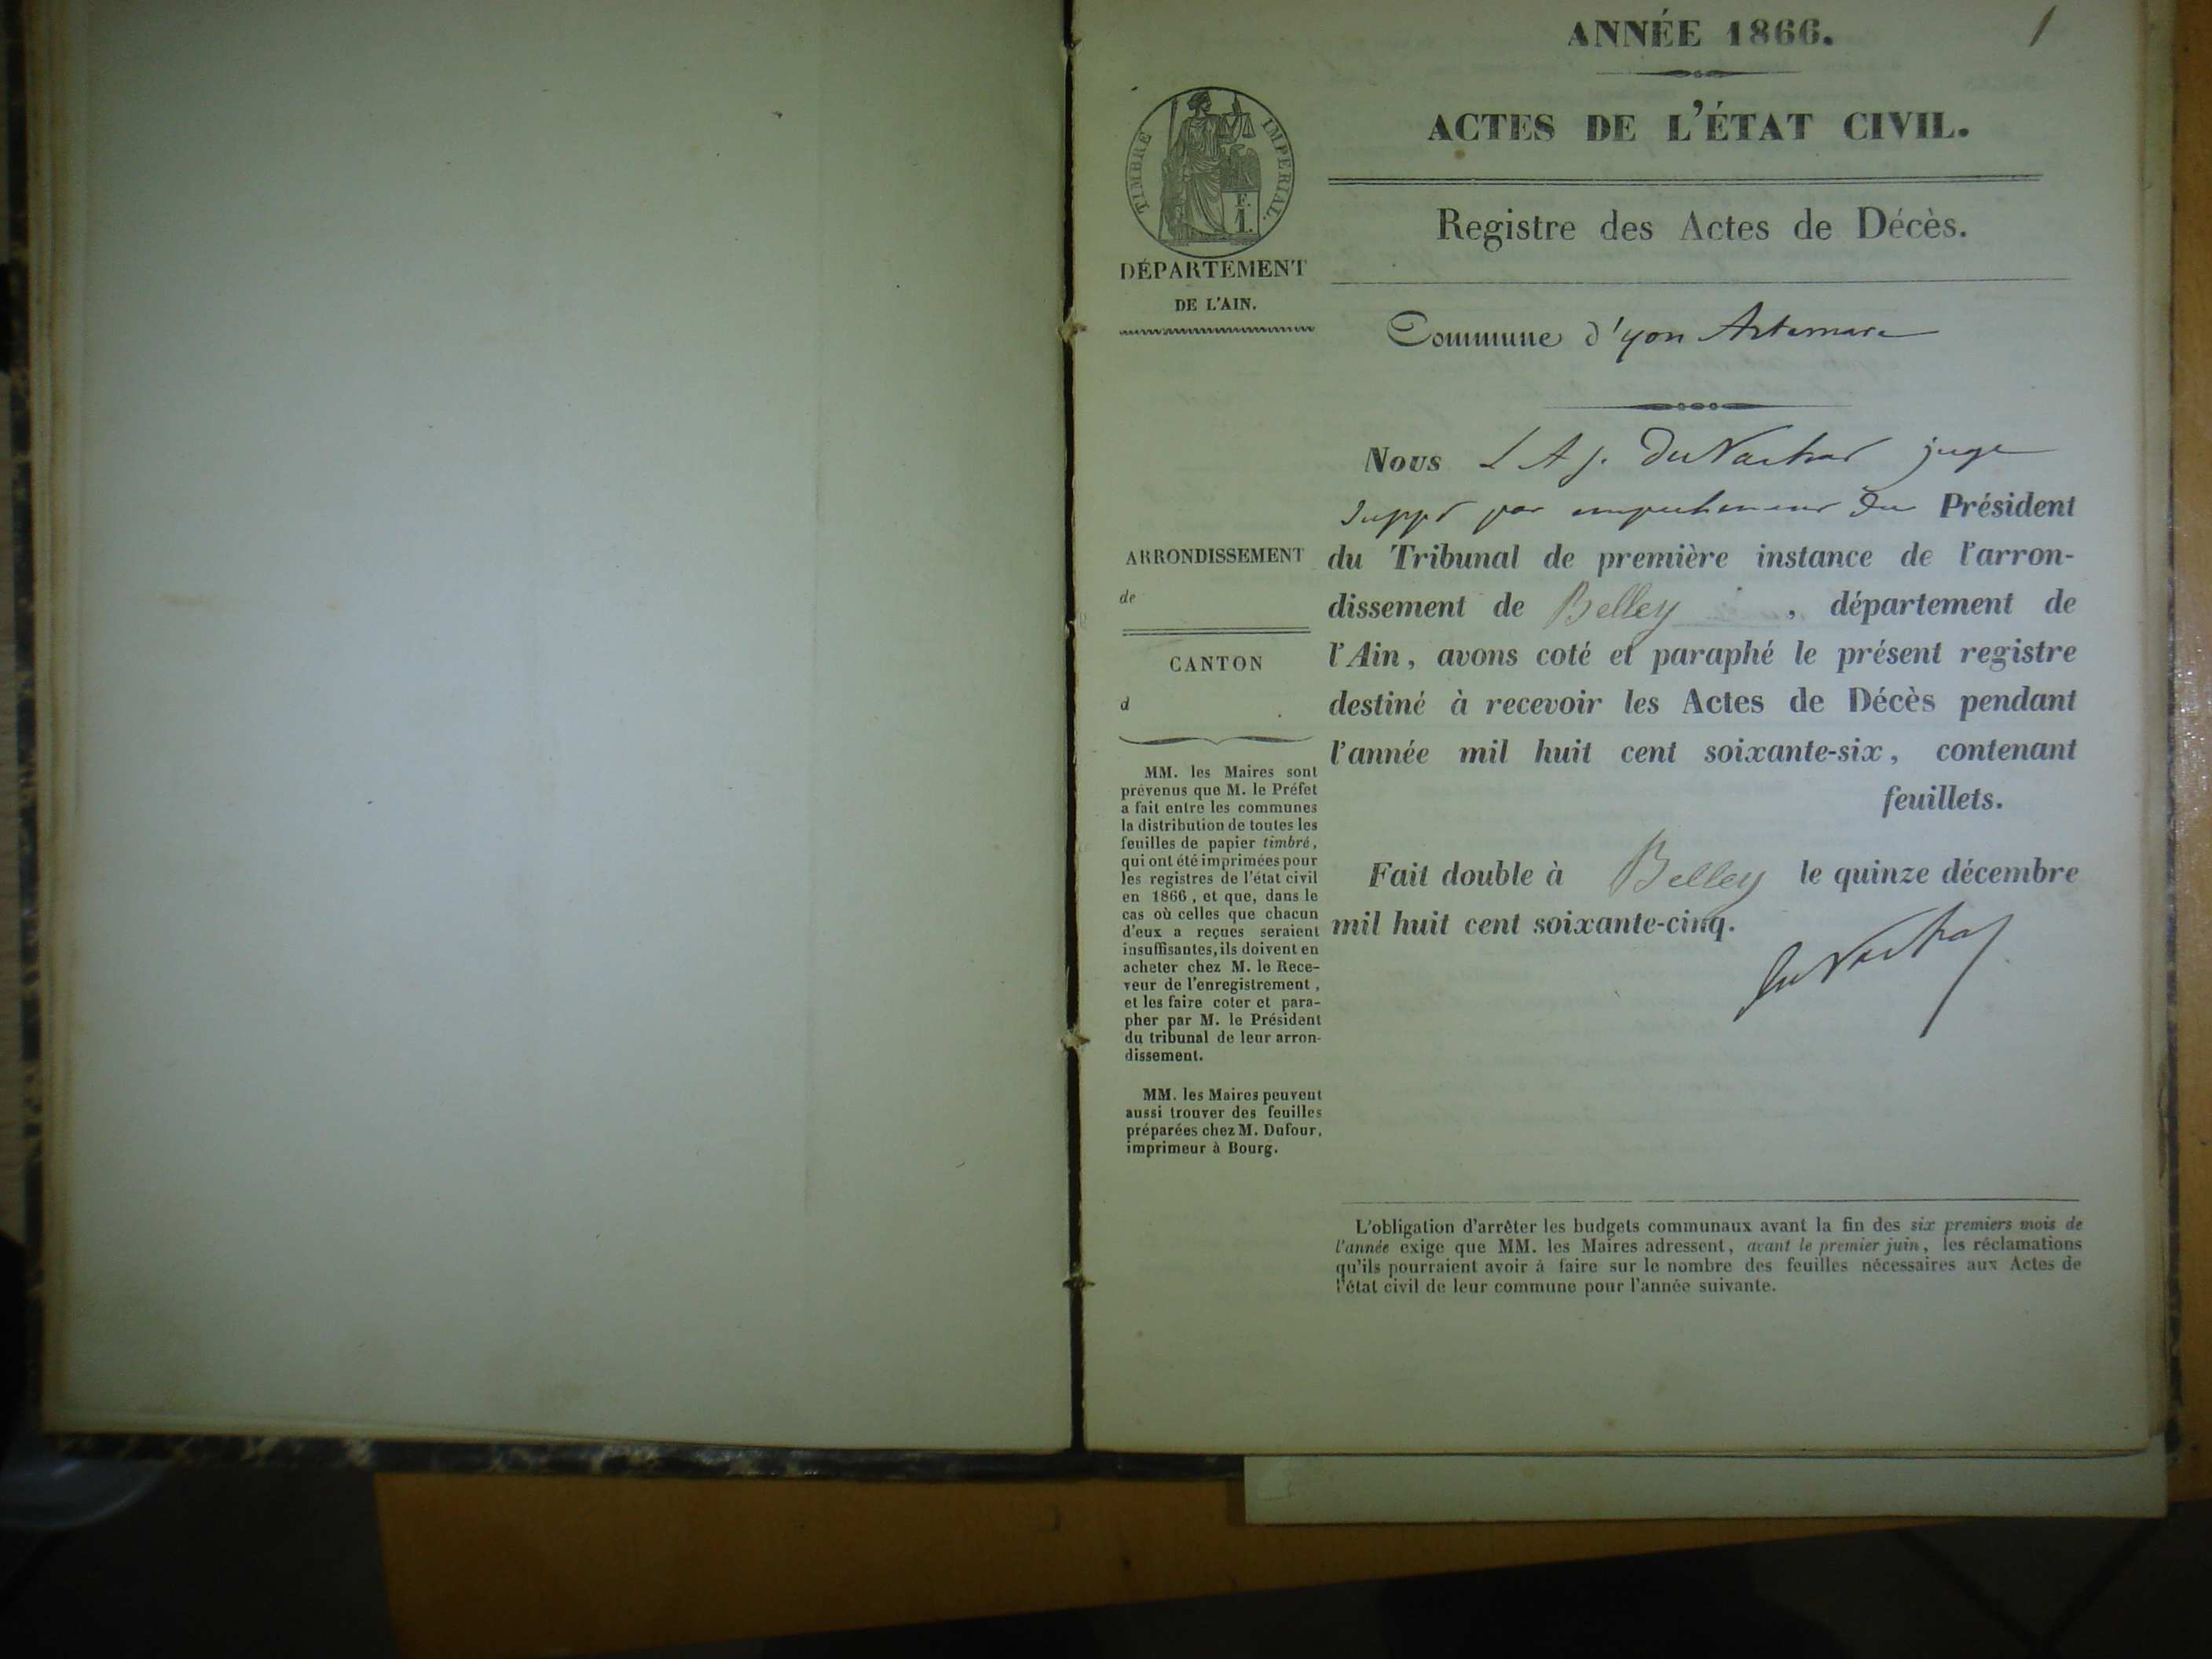 ANNÉE 1866.
1
ACTES DE L'ÉTAT CIVIL.
Registre des Actes de Décès.
TIMBRE IMPERIAL.
F.
1.
DÉPARTEMENT
DE L'AIN.
Commune d'yon Artemare
Nous L A J. juge
suppt par empechement du Président
du Tribunal de première instance de l'arron-
dissement de Belley, département de
l'Ain, avons coté et paraphé le présent registre
destiné à recevoir les Actes de Décès pendant
l'année mil huit cent soixante-six, contenant
feuillets.
Fait double à Belley le quinze décembre
mil huit cent soixante-cinq.
ARRONDISSEMENT
de
CANTON
d
MM. les Maires sont
prévenus que M. le Préfet
a fait entre les communes
la distribution de toutes les
feuilles de papier timbré,
qui ont été imprimées pour
les registres de l'état civil
en 1866, et que, dans le
cas où celles que chacun
d'eux a reçues seraient
insuffisantes, ils doivent en
acheter chez M. le Rece-
veur de l'enregistrement,
et les faire coter et para-
pher par M. le Président
du tribunal de leur arron-
dissement.
MM. les Maires peuvent
aussi trouver des feuilles
préparées chez M. Dufour,
imprimeur à Bourg.
L'obligation d'arrêter les budgets communaux avant la fin des six premiers mois de
l'année exige que MM. les Maires adressent, avant le premier juin, les réclamations
qu'ils pourraient avoir à faire sur le nombre des feuilles nécessaires aux Actes de
l'état civil de leur commune pour l'année suivante.